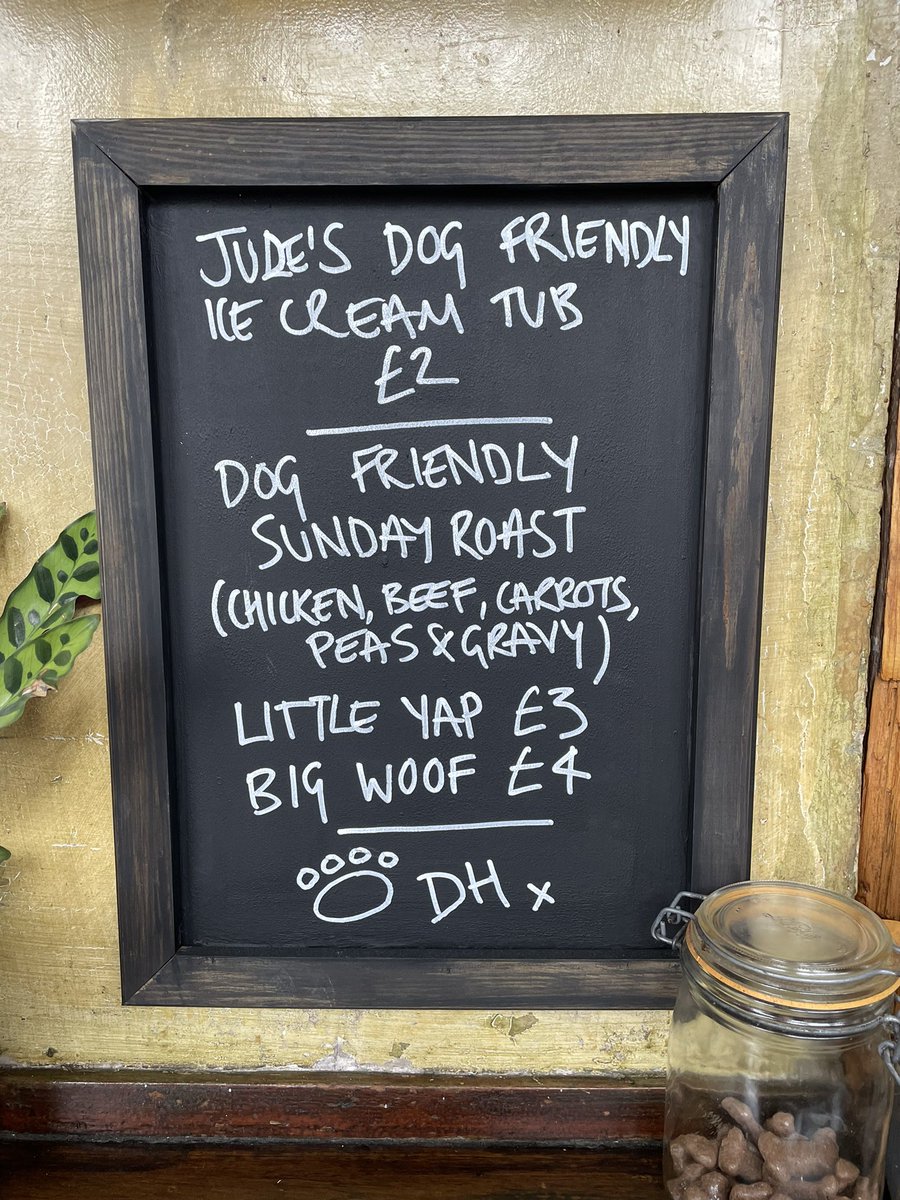 JUDE'S DOG FRIENDLY
ICE CREAM TUB
£2
DOG FRIENDLY
SUNDAY ROAST
(CHICKEN, BEEF, CARROTS,
PEAS & GRAVY)
LITTLE YAP £3
BIG WOOF £4
DH x